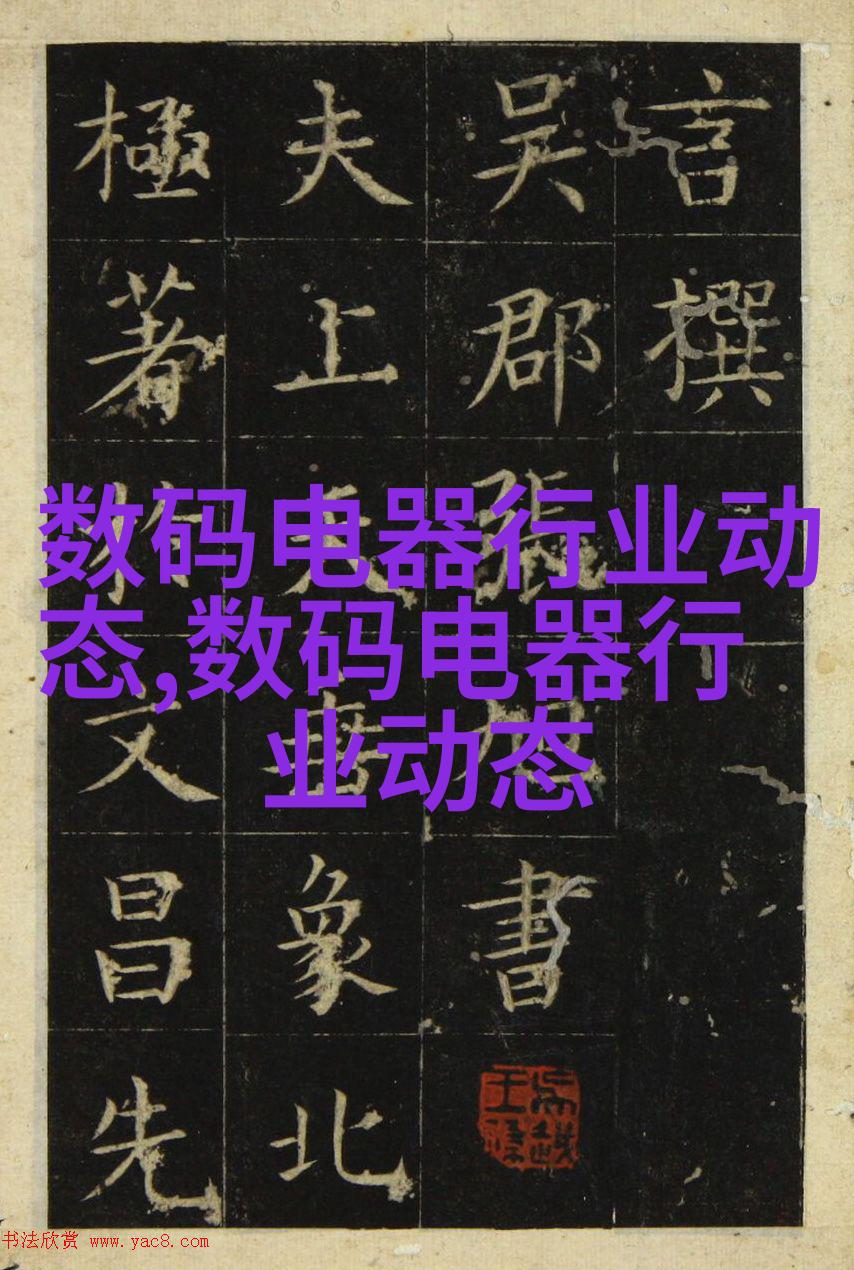 言撰
吴郡張旭書
夫上天垂象北
極著於文昌先
数码电器行业动
态,数码电器行
业动态
书法欣赏 www.yac8.com